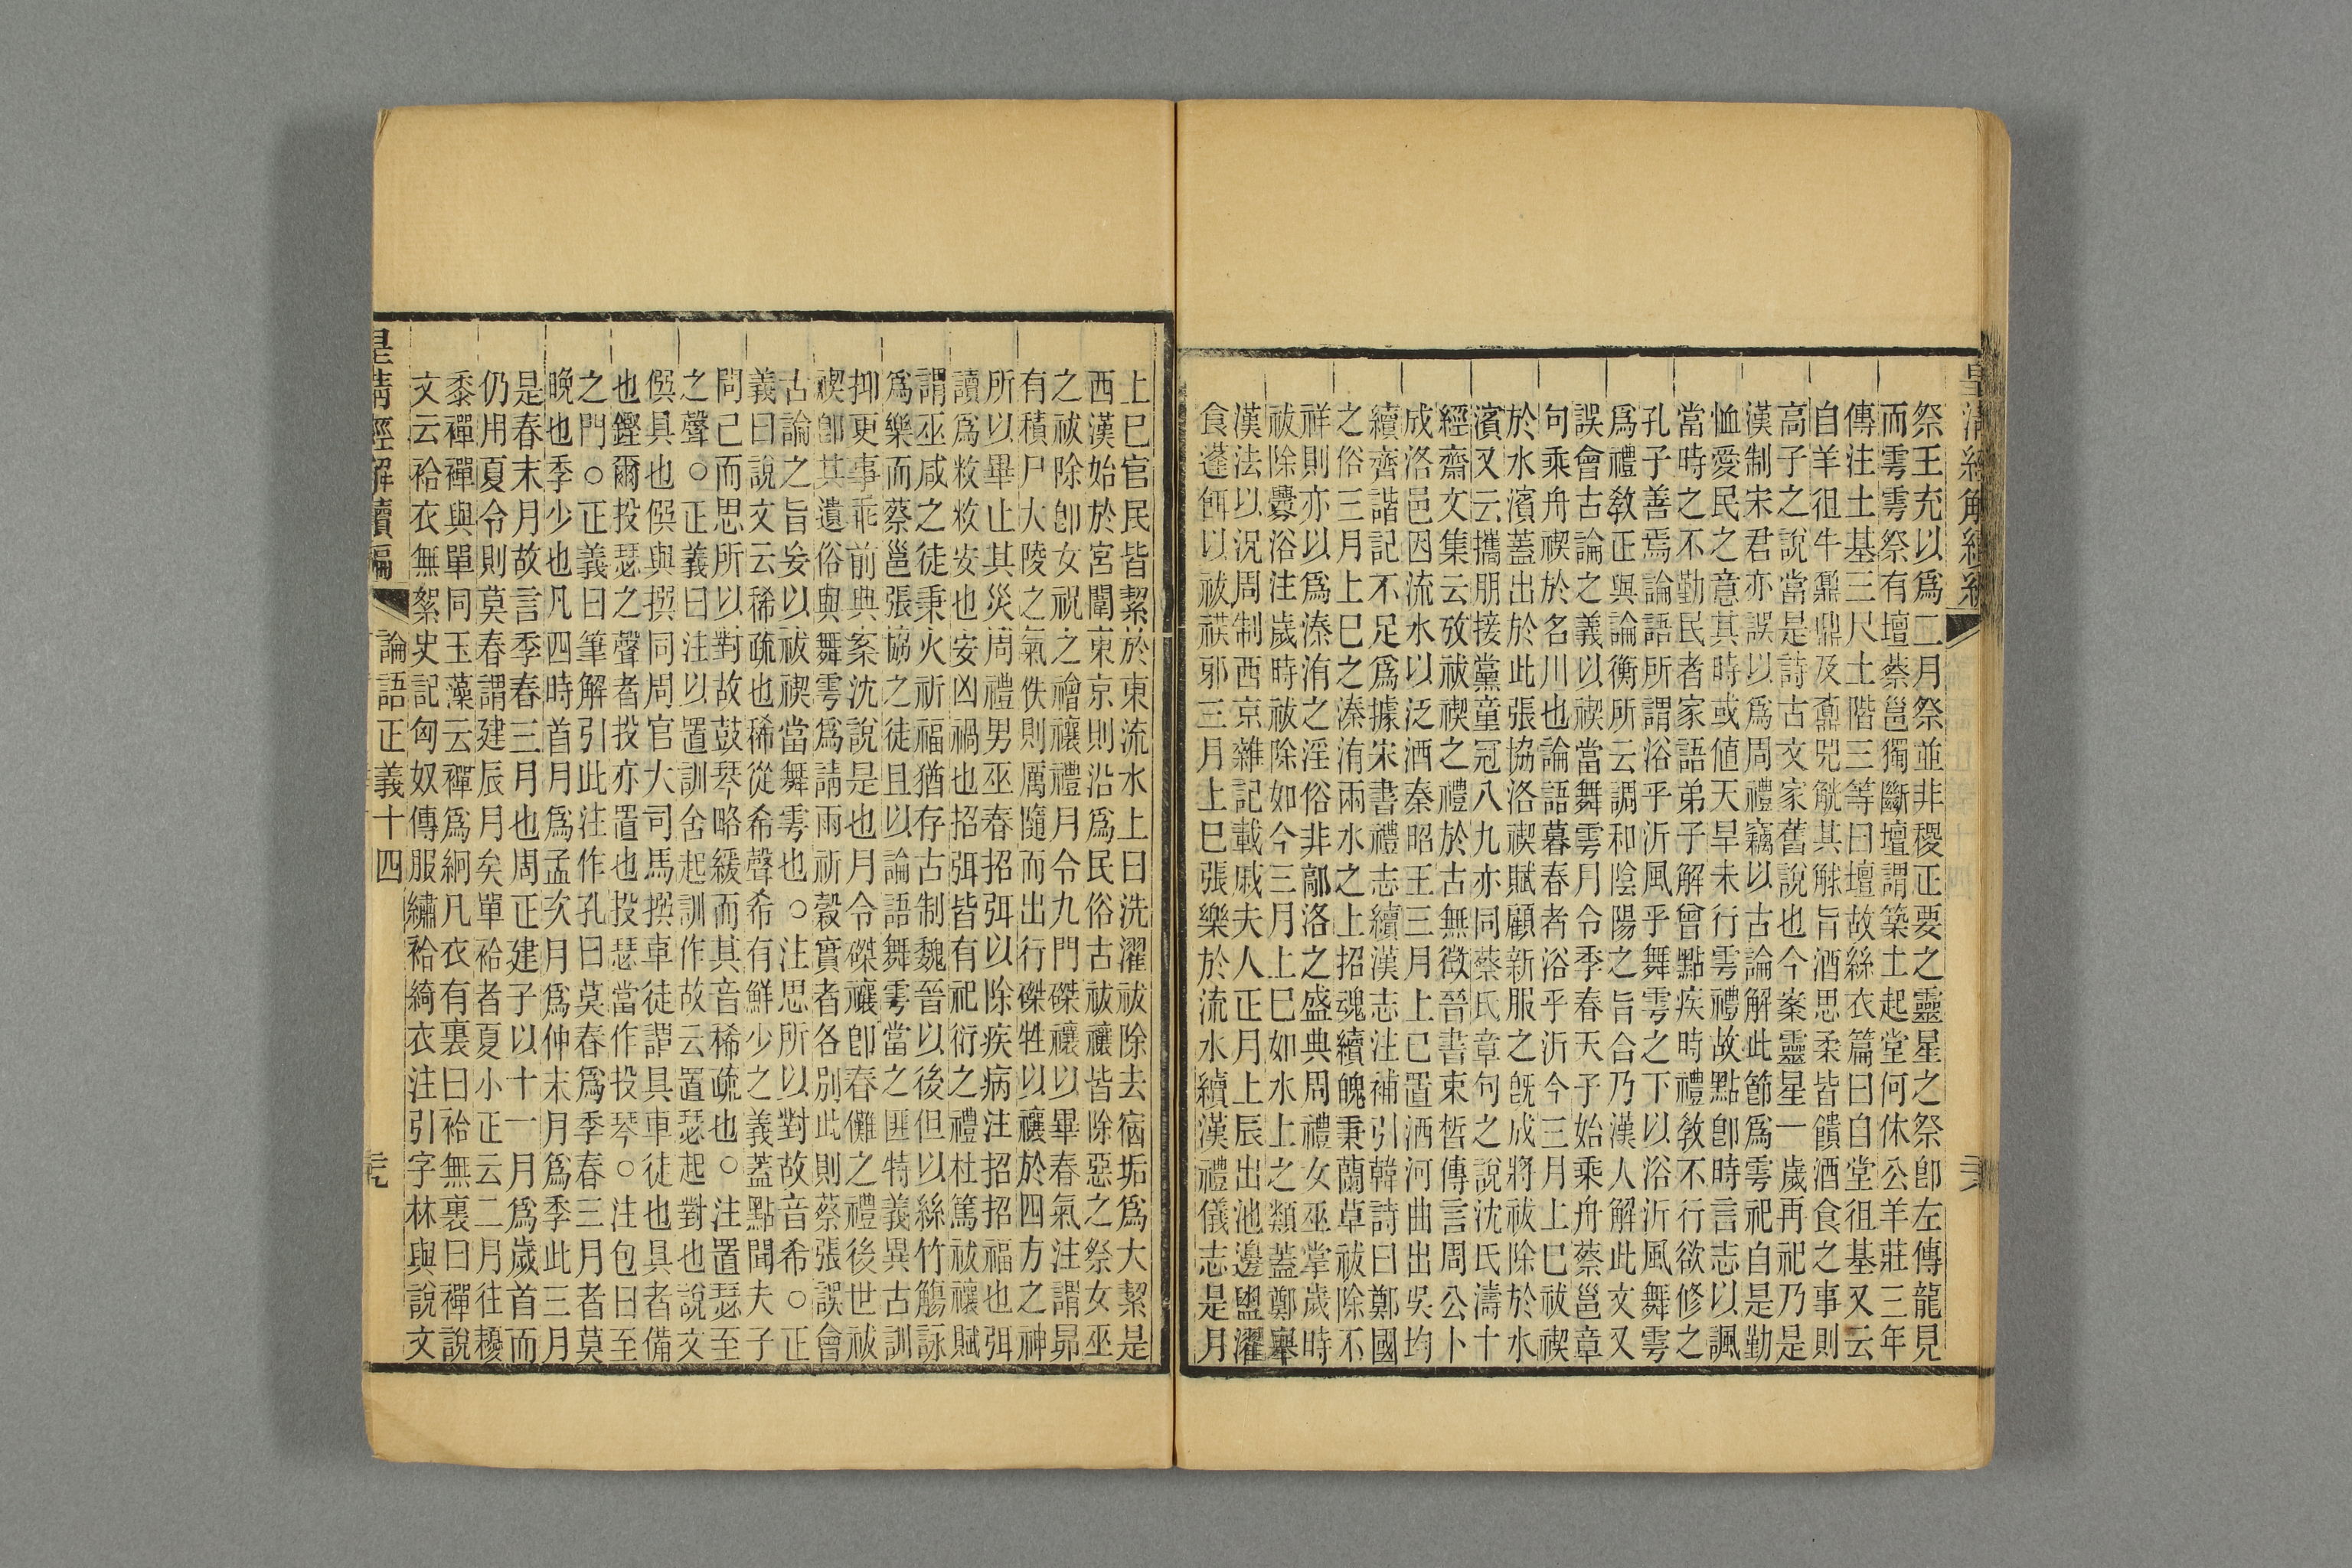 皇清經解續編
祭王充以爲二月祭並非稷正要之靈星之祭卽左傳龍見
而雩雩祭有壇蔡邕獨斷壇謂築土起堂何休公羊莊三年
傳注土基三尺土階三等曰壇故絲衣篇曰自堂徂基又云
自羊徂牛鼐鼎及鼒兕觥其觩旨酒思柔皆饋酒食之事則
高子之說當是詩古文家舊說也今案靈星一歲再祀乃是
漢制宋君亦誤以爲周禮竊以古論解此節爲雩祀自是勤
恤愛民之意其時或値天旱未行雩禮故點卽時言志以諷
當時之不勤民者家語弟子解曾點疾時禮敎不行欲修之
孔子善焉論語所謂浴乎沂風乎舞雩之下以浴沂風舞雩
爲禮敎正與論衡所云調和陰陽之旨合乃漢人解此文又
誤會古論之義以禊當舞雩月令季春天子始乘舟蔡邕章
句乘舟禊於名川也論語暮春者浴乎沂今三月上巳祓禊
於水濱蓋出於此張協洛禊賦顧新服之旣成將祓除於水
濱又云攜朋接黨童冠八九亦同蔡氏章句之說沈氏濤十
經齋文集云攷祓禊之禮於古無徵晉書束晳傳言周公卜
成洛邑因流水以泛酒秦昭王三月上巳置酒河曲出吳均
續齊諧記不足爲據宋書禮志續漢志注補引韓詩曰鄭國
之俗三月上巳之溱洧兩水之上招魂續魄秉蘭草祓除不
祥則亦以爲溱洧之淫俗非鄗洛之盛典周禮女巫掌歲時
祓除釁浴注歲時祓除如今三月上巳如水上之類蓋鄭舉
漢法以況周制西京雜記載戚夫人正月上辰出池邊盥濯
食蓬餌以祓禖邪三月上巳張樂於流水續漢禮儀志是月
上巳官民皆絜於東流水上曰洗濯祓除去宿垢爲大絜是
西漢始於宮闈東京則沿爲民俗古祓禳皆除惡之祭女巫
之祓除卽女祝之禬禳禮月令九門磔禳以畢春氣注謂昴
有積尸大陵之氣佚則厲隨而出行磔牲以禳於四方之神
所以畢止其災周禮男巫春招弭以除疾病注招招福也弭
讀爲敉敉安也安凶禍也招弭皆有祀衍之禮杜篤祓禳賦
謂巫咸之徒秉火祈福猶存古制魏晉以後但以絲竹觴詠
爲樂而蔡邕張協之徒且以論語舞雩當之匪特義異古訓
抑更事乖前典案沈說是也月令磔禳卽春儺之禮後世祓
禊卽其遺俗與舞雩爲請雨祈穀實者各別此則蔡張誤會
古論之旨妄以祓禊當舞雩也○注思所以對故音希○正
義曰說文云稀疏也稀從希聲希有鮮少之義蓋點聞夫子
問己而思所以對故鼓琴略緩而其音稀疏也○注置瑟至
之聲○正義曰注以置訓舍起訓作故云置瑟起對也說文
僎具也僎與撰同周官大司馬撰車徒謂具車徒也具者備
也鏗爾投瑟之聲者投亦置也投瑟當作投琴○注包曰至
之門○正義曰筆解引此注作孔曰莫春爲季春三月者莫
晚也季少也凡四時首月爲孟次月爲仲末月爲季此三月
是春末月故言季春三月也周正建子以十一月爲歲首而
仍用夏令則莫春謂建辰月矣單袷者夏小正云二月往耰
黍襌襌與單同玉藻云襌爲絅凡衣有裏曰袷無裏曰襌說
文云袷衣無絮史記匈奴傳服繡袷綺衣注引字林與說文
皇清經解續編 論語正義十四